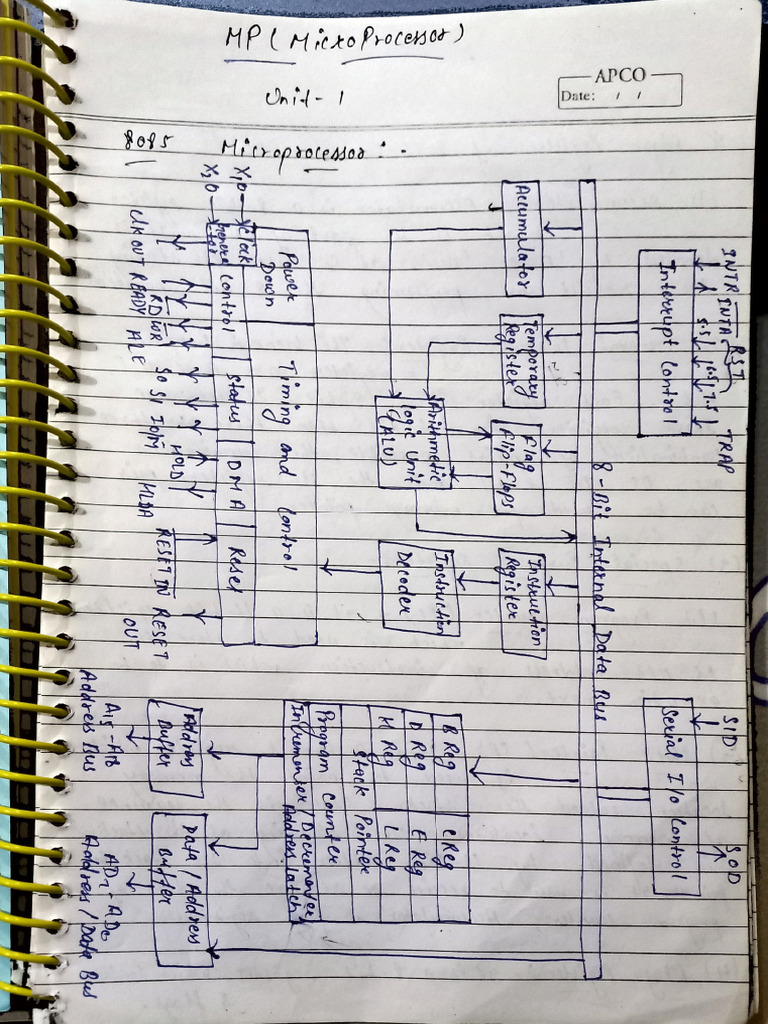 MP (MicroProcessor)
Unit - 1
APCO
Date: / /
8085 Microprocessor : -
INTR INTA RST TRAP
5.5 6.5 7.5
Interrupt Control
SID SOD
Serial I/o Control
8-Bit Internal Data Bus
Accumulator
Temporary
Register
Flag
Flip-Flops
Instruction
Register
Arithmetic
logic Unit
(ALU)
Instruction
Decoder
B Reg C Reg
D Reg E Reg
H Reg L Reg
Stack Pointer
Program Counter
Incrementer / Decrementer
Address latch
Power
Down
Timing and Control
X1
X2
Clock
Control Status DMA Reset
CLK OUT READY RD WR ALE S0 S1 IO/M HOLD HLDA RESET IN RESET
OUT
Address
Buffer
Data / Address
Buffer
A15 - A8
Address Bus
AD7 - AD0
Address / Data Bus